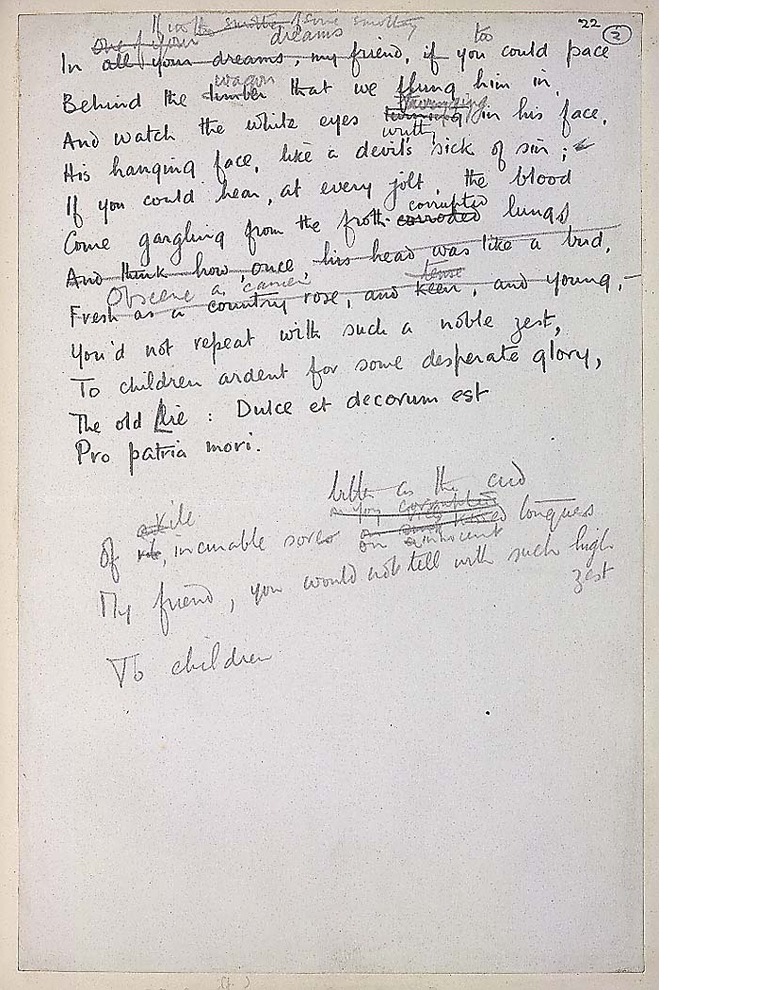 If in the smother of some smothering
One of your dreams too 22
In all your dreams, my friend, if you could pace 2
wagon
Behind the limber that we flung him in,
And watch the white eyes turning in his face,
writhing
His hanging face, like a devil's sick of sin;
If you could hear, at every jolt, the blood
corrupted
Come gargling from the froth corroded lungs
And think how, once, his head was like a bud,
Obscene as cancer tense
Fresh as a country rose, and keen, and young,—
You'd not repeat with such a noble zest,
To children ardent for some desperate glory,
The old Lie : Dulce et decorum est
Pro patria mori.
bitter as the cud
vile
Of incurable sores on innocent tongues
My friend, you would not tell with such high
zest
To children